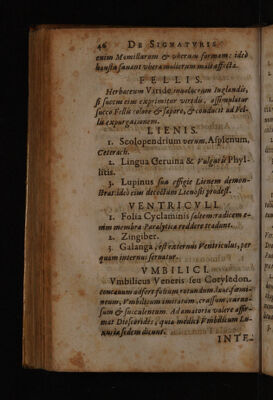 46 DE SIGNATVRIS
enim Mamillarum & vberum formam: ideò
haustu sanant vbera mulierum malè affecta.
FELLIS.
Herbaceum Viride inuolucrum Iuglandis,
si succus eius exprimitur viridis, assimulatur
succo Fellis colore & sapore, & conducit ad Fel-
lis expurgationem.
LIENIS.
1. Scolopendrium verum, Asplenum,
Ceterach.
2. Lingua Ceruina & Vulgaris Phyl-
litis.
3. Lupinus sua effigie Lienem demon-
strat: ideò eius decoctum Lienosis prodest.
VENTRICVLI.
1. Folia Cyclaminis saltem: radicem e-
nim membra Paralytica reddere tradunt.
2. Zingiber.
3. Galanga, est externus Ventriculus, per
quam internus seruatur.
VMBILICI.
Vmbilicus Veneris seu Cotyledon.
concauum adfert folium rotundum
neum, Vmbilicum imitatum, crassum, carno-
sum & succulentum. Ad amatoria valere affir-
mat Dioscorides, quia medici Vmbilicum Lu-
xuriæ sedem dicunt.
INTE-